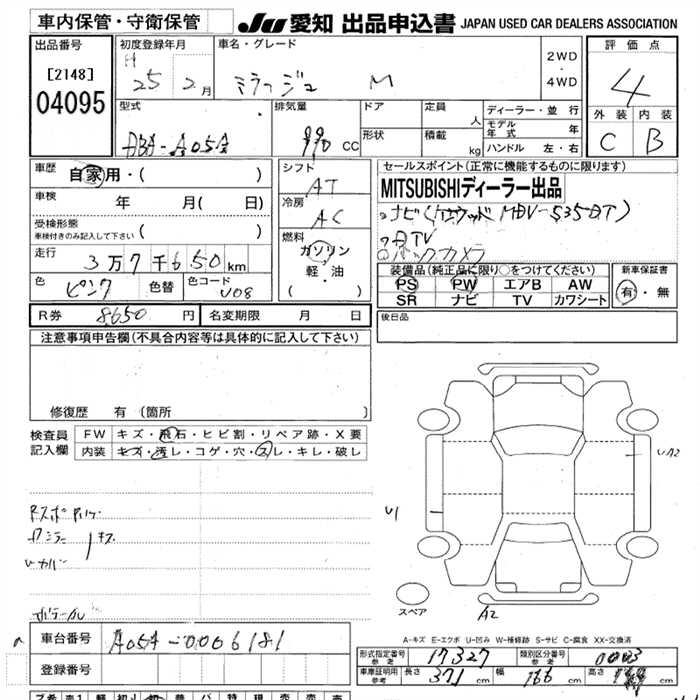 車内保管・守衛保管
JU 愛知 出品申込書 JAPAN USED CAR DEALERS ASSOCIATION
出品番号
[2148]
04095
初度登録年月
H 25 2月
車名・グレード
ミラージュ M
2WD・4WD
評価点
4
外装 内装
C B
型式
DBA-A05A
排気量
990 CC
ドア
形状
定員 人
積載 kg
ディーラー・並行
モデル年式 年
ハンドル 左・右
車歴
自家用・( )
車検
年 月( 日)
受検形態
車検付きのみ記入して下さい ( )
走行
3万7千650km
色 ピンク 色替 色コード U08
シフト
AT
冷房
AC
燃料
ガソリン
軽・油
( )
セールスポイント(正常に機能するものに限ります)
MITSUBISHIディーラー出品
ナビ(ケンウッド MDV-535DT)
DTV
バックカメラ
装備品(純正品に限り○をつけてください)
PS PW エアB AW
SR ナビ TV カワシート
新車保証書
有・無
R券 8650円 名変期限 月 日
後日品
注意事項申告欄(不具合内容等は具体的に記入して下さい)
修復歴 有(箇所 )
検査員記入欄
FW キズ・飛石・ヒビ割・リペア跡・X要
内装 キズ・汚レ・コゲ・穴・スレ・キレ・破レ
キズ
U1
UA2
A2
スペア
A-キズ E-エクボ U-凹み W-補修跡 S-サビ C-腐食 XX-交換済
車台番号 A05A-0006181
登録番号
形式指定番号 参考 17327 類別区分番号 参考 0003
車庫証明用 参考 長さ 371 cm 幅 166 cm 高さ cm